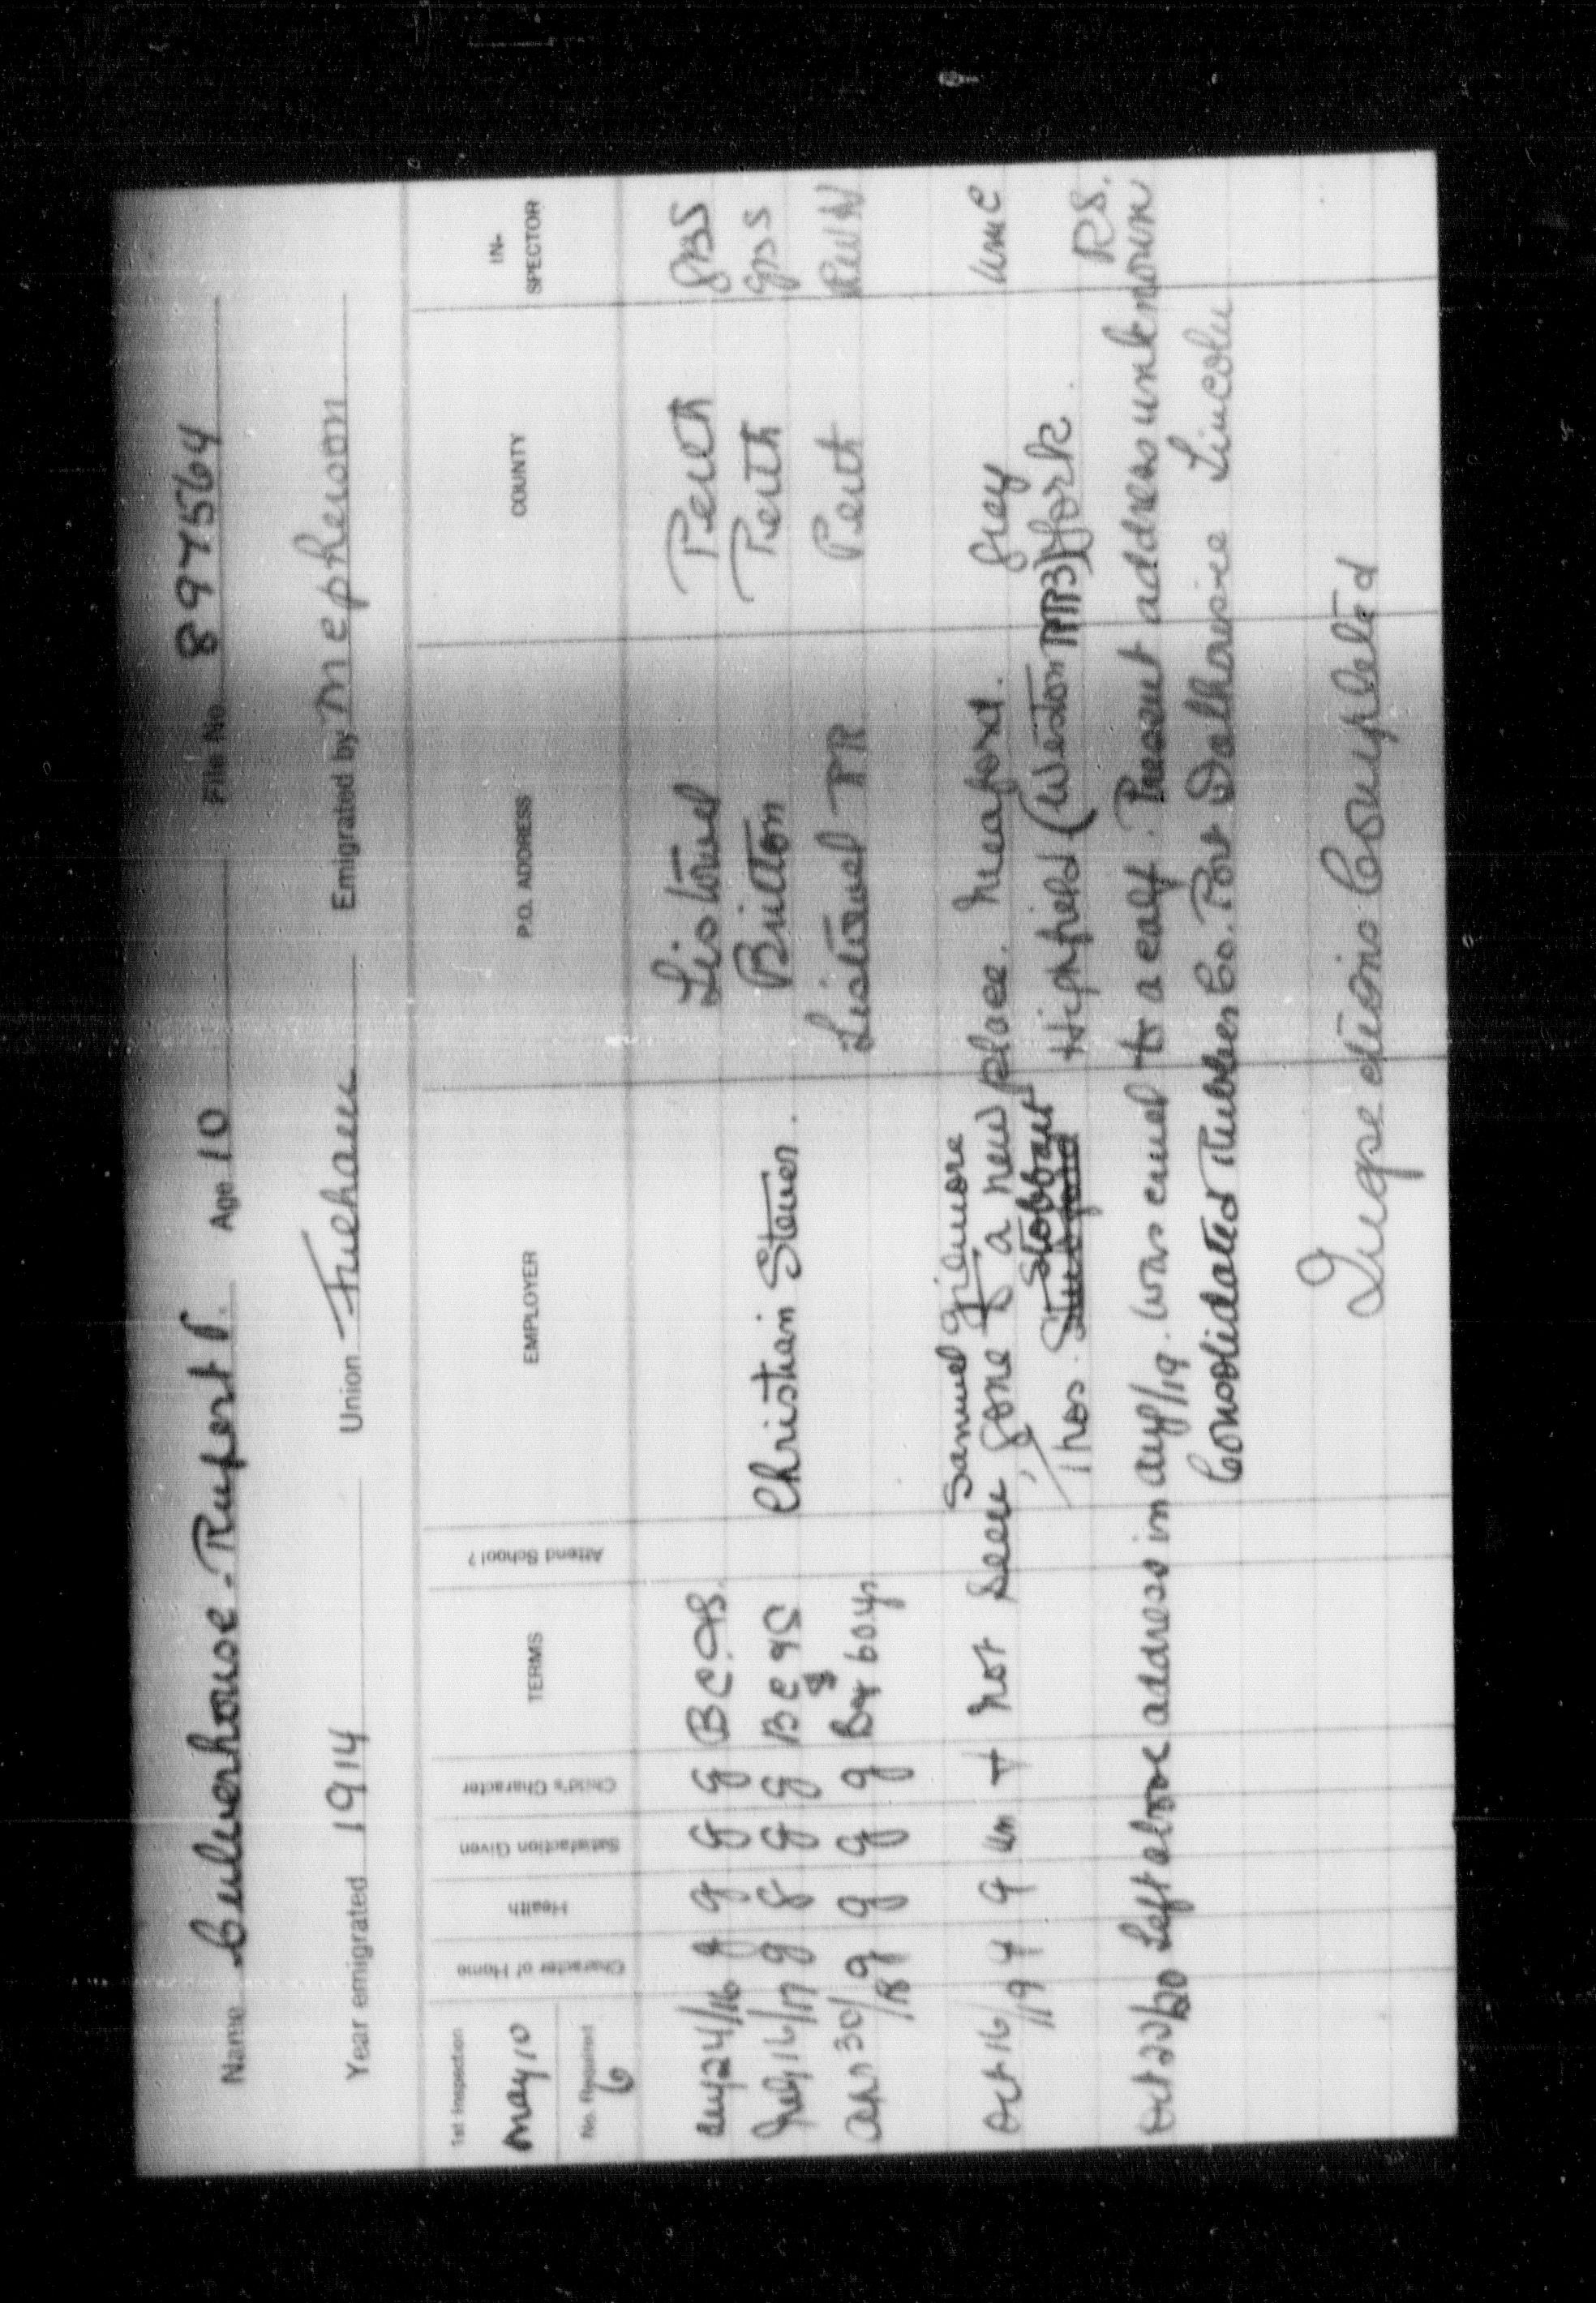 Name Culverhouse - Rupert P. Age 10 File No. 897564
Year emigrated 1914 Union Fulham Emigrated by McPherson
1st Inspection
May 10
No. Required
6
Character of Home
Health
Satisfaction Given
Child's Character
TERMS
Attend School?
EMPLOYER
P.O. ADDRESS
COUNTY
IN-
SPECTOR
Aug 24/16 g g g g B C & S. Listowel Perth GBS
July 16/17 g g g g B C & S Christian Steven Britton Perth GBS
Apr 30/18 g g g g 60 yr Listowel RR Perth
Samuel Gilmore
Oct 16/19 g g un Not seen gone to a new place. Meaford. Grey
Stobbart
Thos. Highfield (Weston RR3) York. RS.
Oct 22/20 Left above address in Aug/19. Was cruel to a calf. Present address unknown
Consolidated Rubber Co. Port Dalhousie Lincoln
Inspections Completed